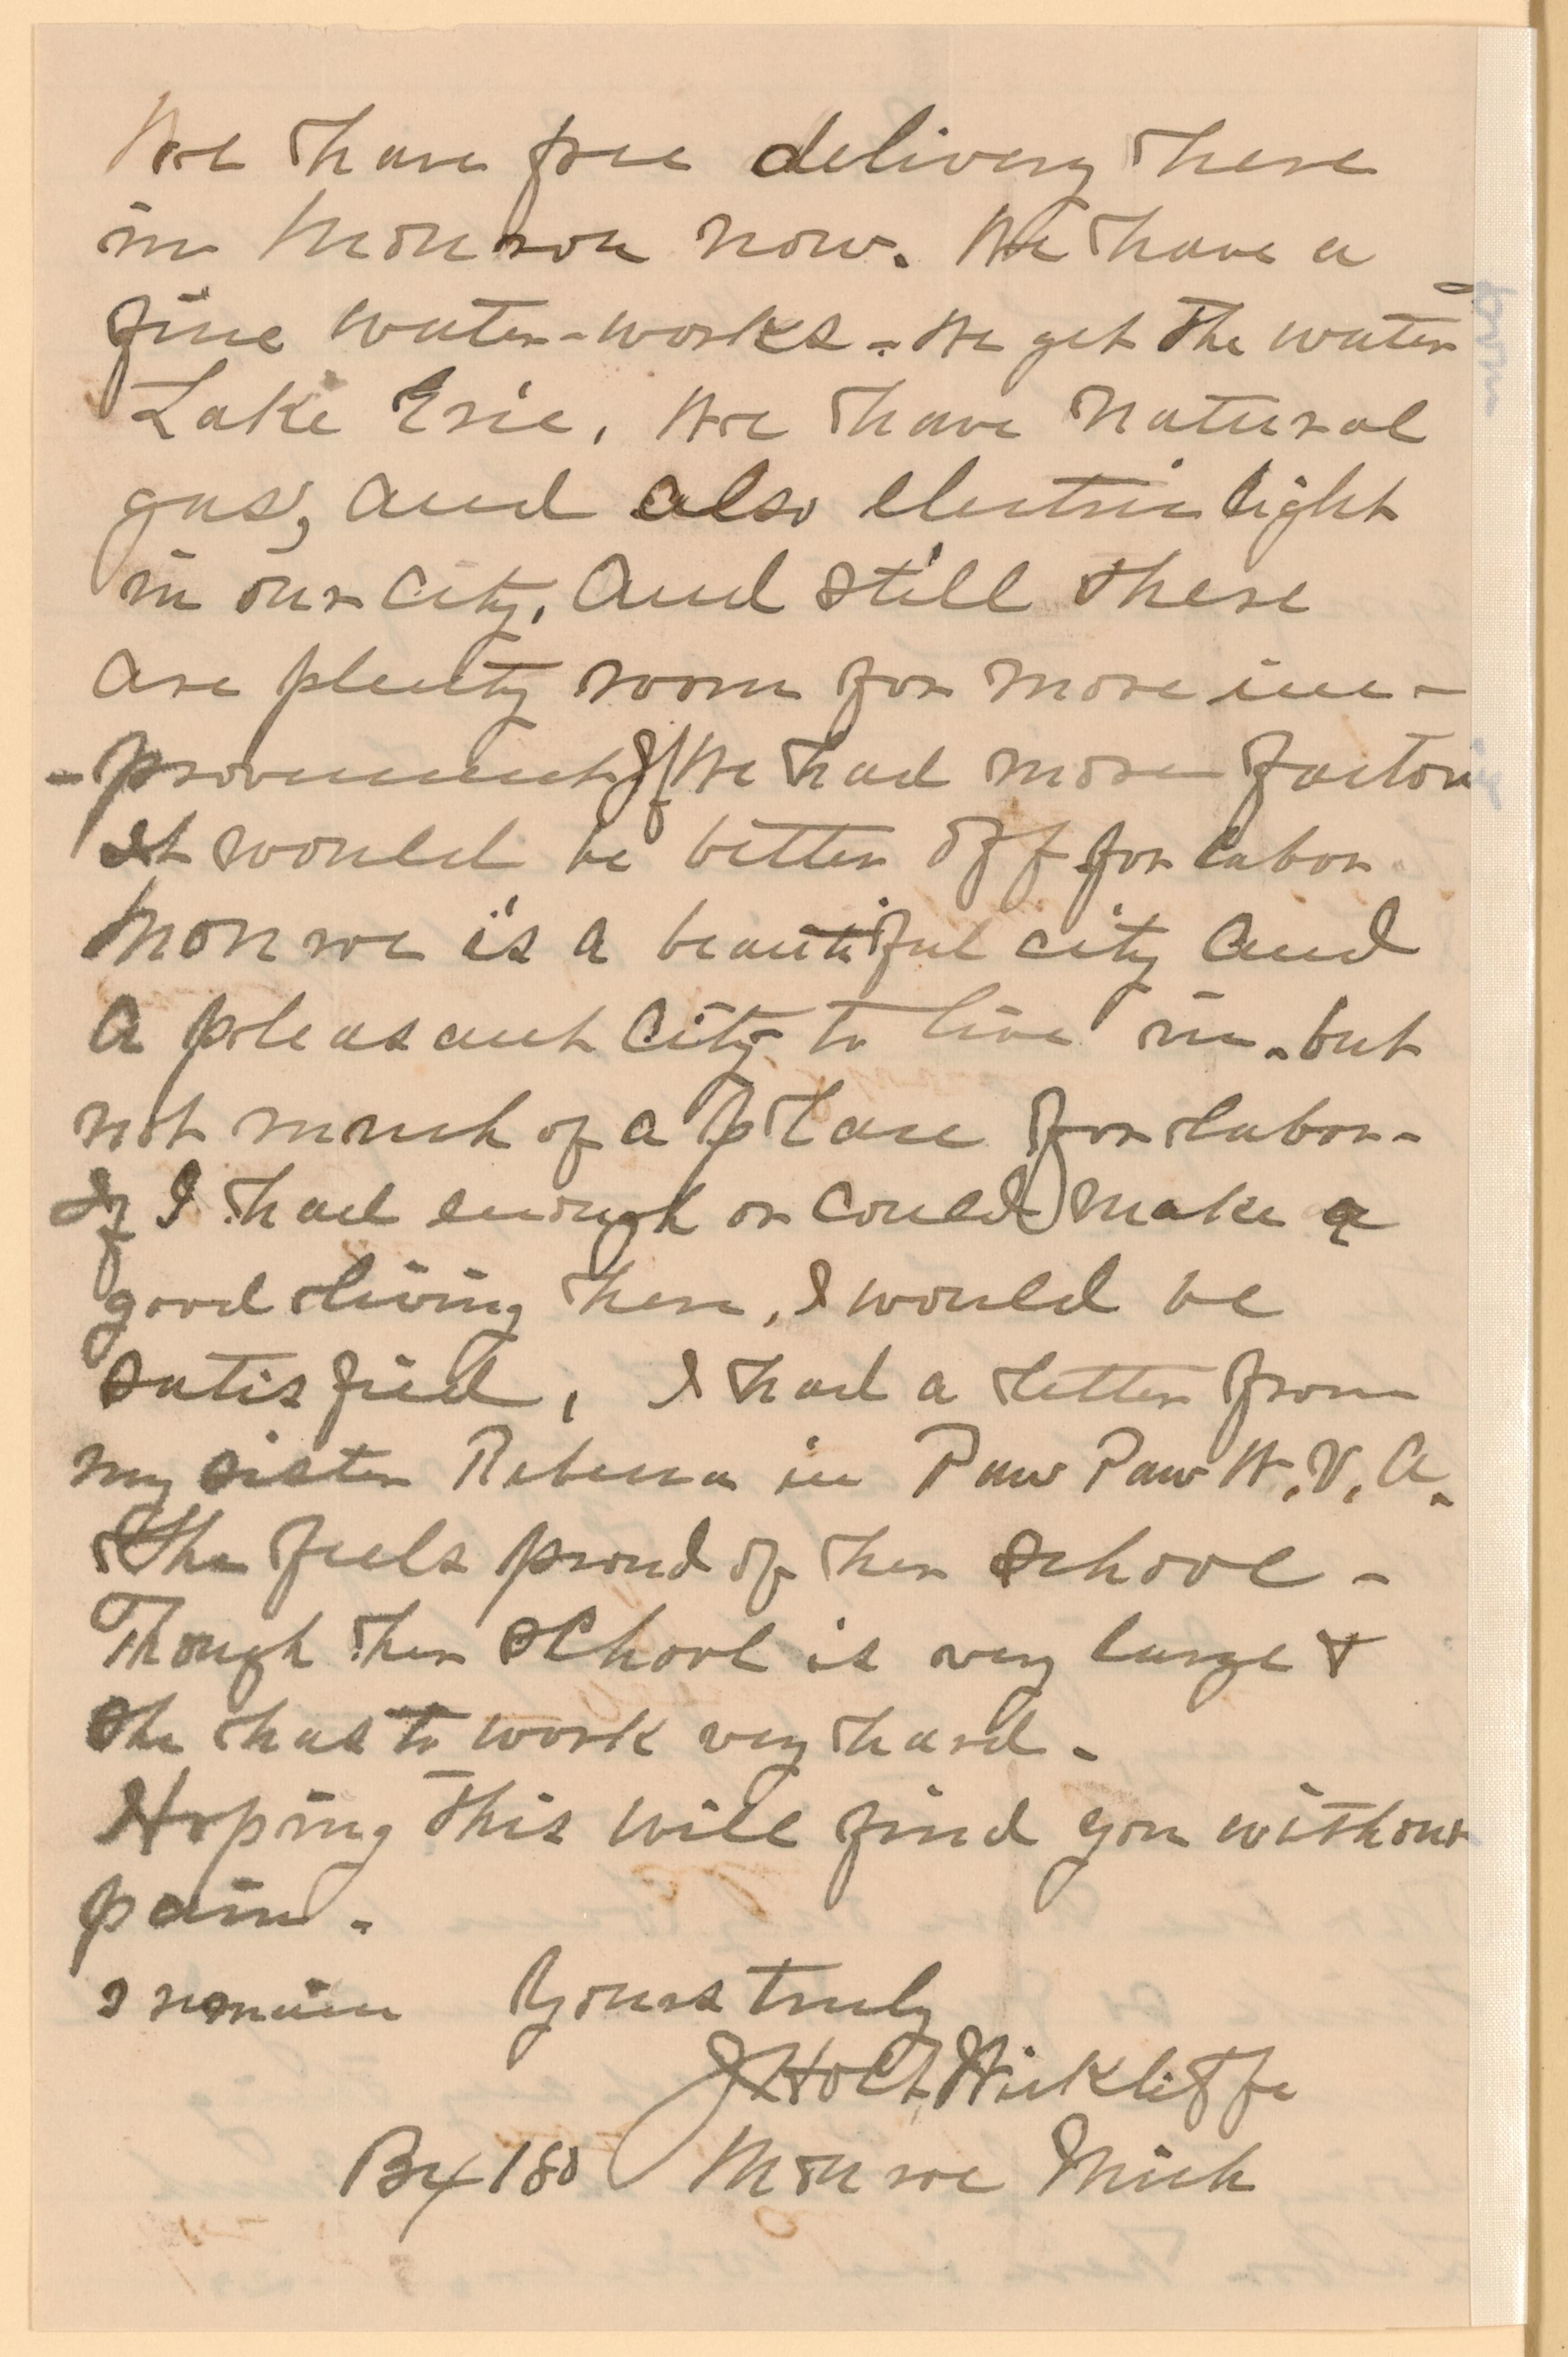 We have free delivery here
in Monroe now. We have a
fine water-works - We get the water
Lake Erie. We have natural
gas, and also electric light
in our city. And still there
are plenty room for more im-
-provement If We had more factori
It would be better off for labor
Monroe is a beautiful city and
a pleasant City to live in. but
not much of a place for labor-
If I had enough or could make a
good living here, I would be
satisfied, I had a letter from
my sister Rebecca in Paw Paw W.V.A.
She feels proud of her school -
Though her school is very large &
She has to work very hard -
Hoping this will find you without
pain -
I remain Yours truly
J Holt Wickliffe
Bx 180 Monroe Mich